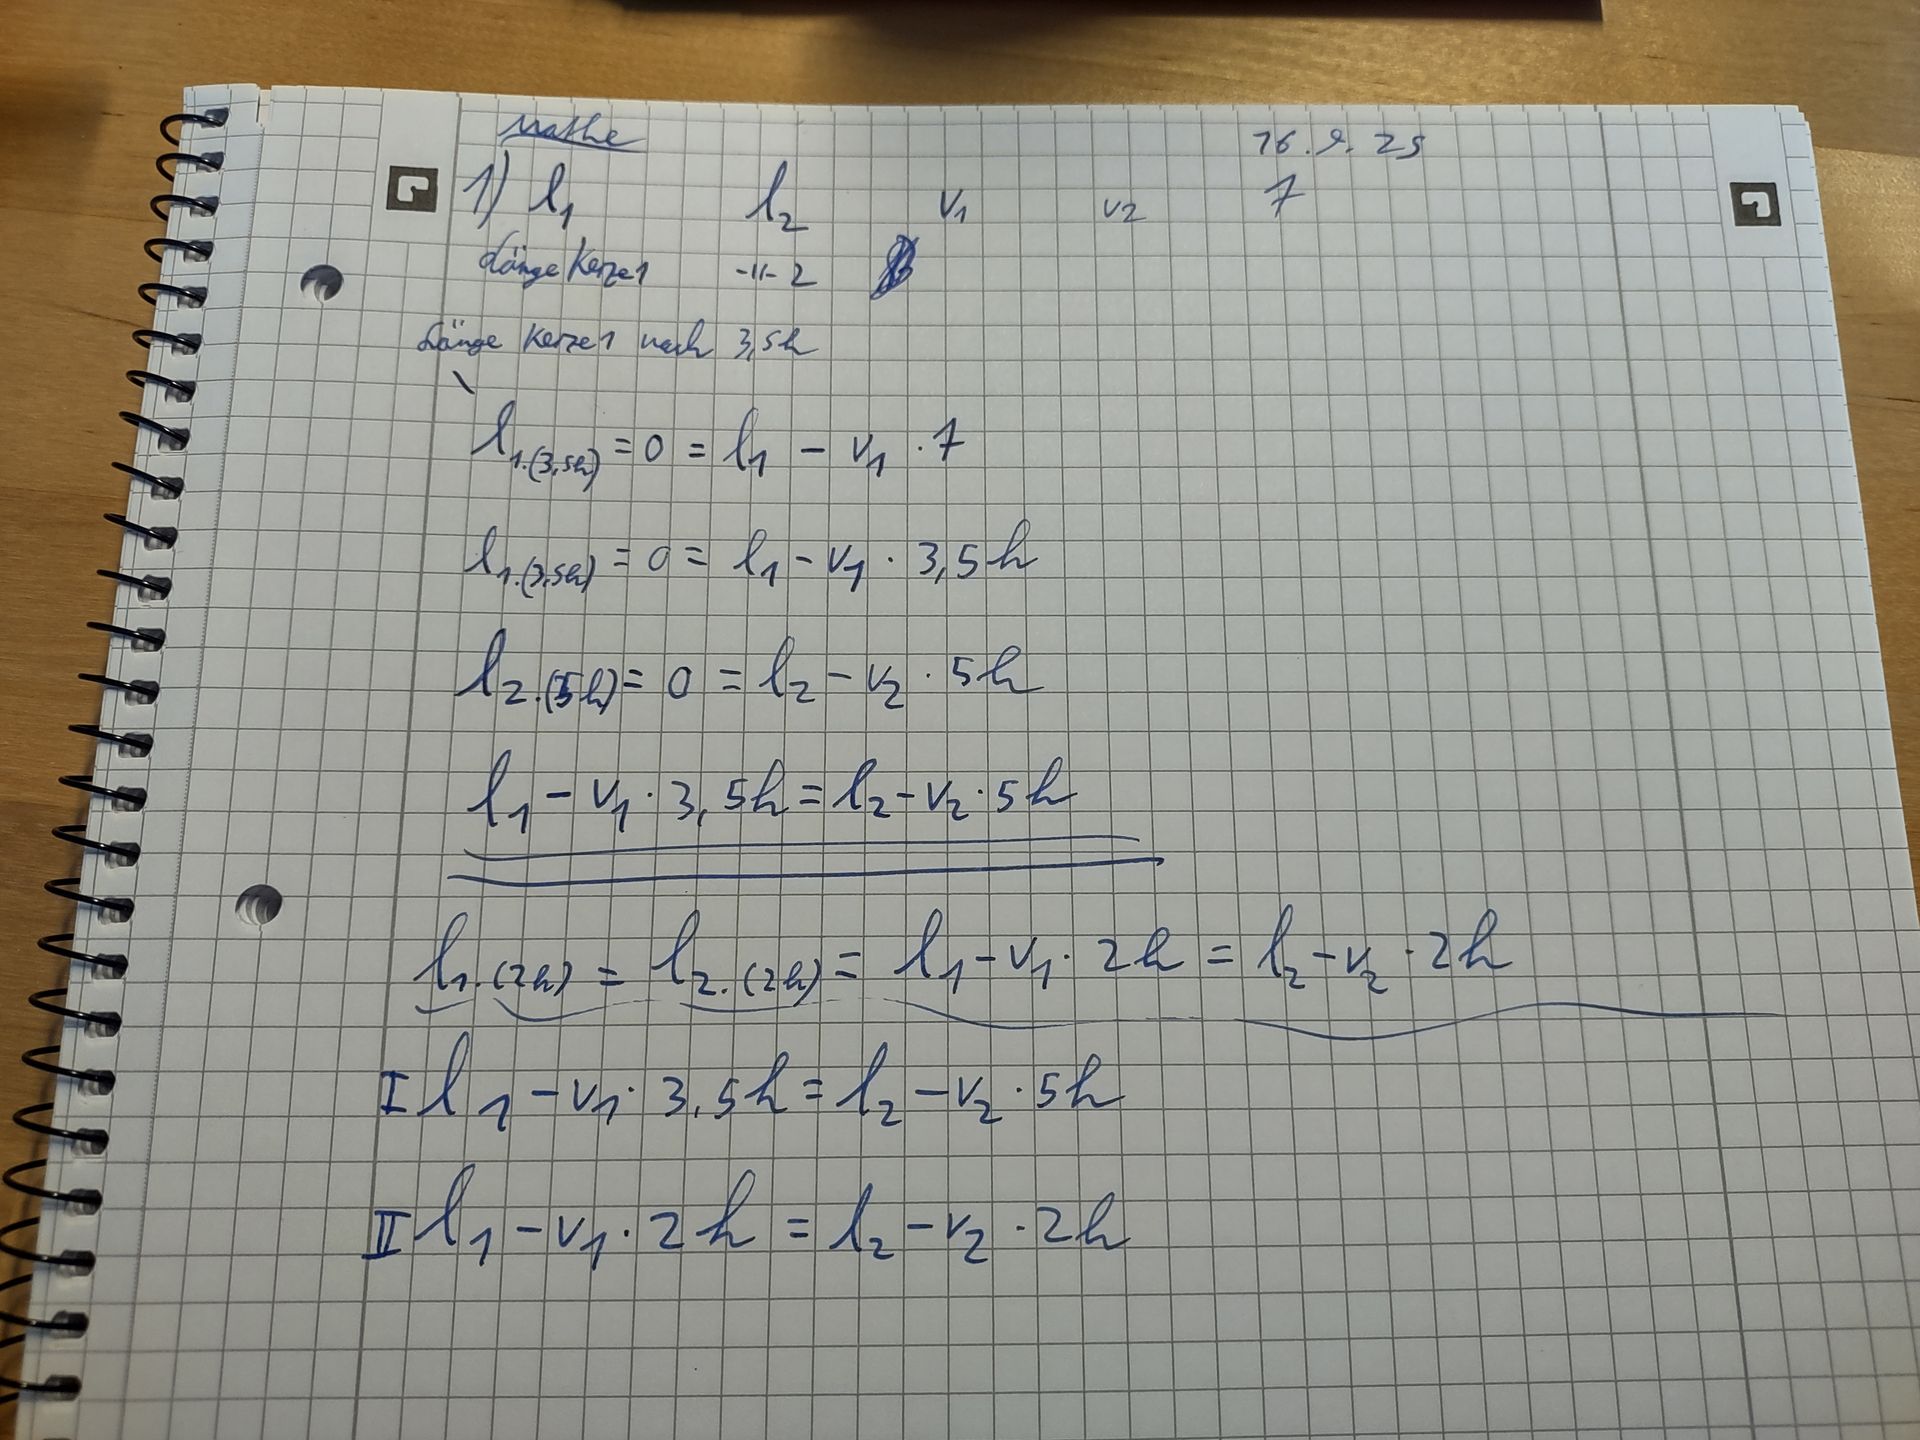 Mathe 16.9.25
1) l₁ l₂ v₁ v₂ 7
Länge Kerze 1 -11- 2
Länge Kerze 1 nach 3,5h
l₁.(3,5h) = 0 = l₁ - v₁ · 7
l₁.(3,5h) = 0 = l₁ - v₁ · 3,5h
l₂.(5h) = 0 = l₂ - v₂ · 5h
l₁ - v₁ · 3,5h = l₂ - v₂ · 5h
l₁.(2h) = l₂.(2h) = l₁ - v₁ · 2h = l₂ - v₂ · 2h
I l₁ - v₁ · 3,5h = l₂ - v₂ · 5h
II l₁ - v₁ · 2h = l₂ - v₂ · 2h